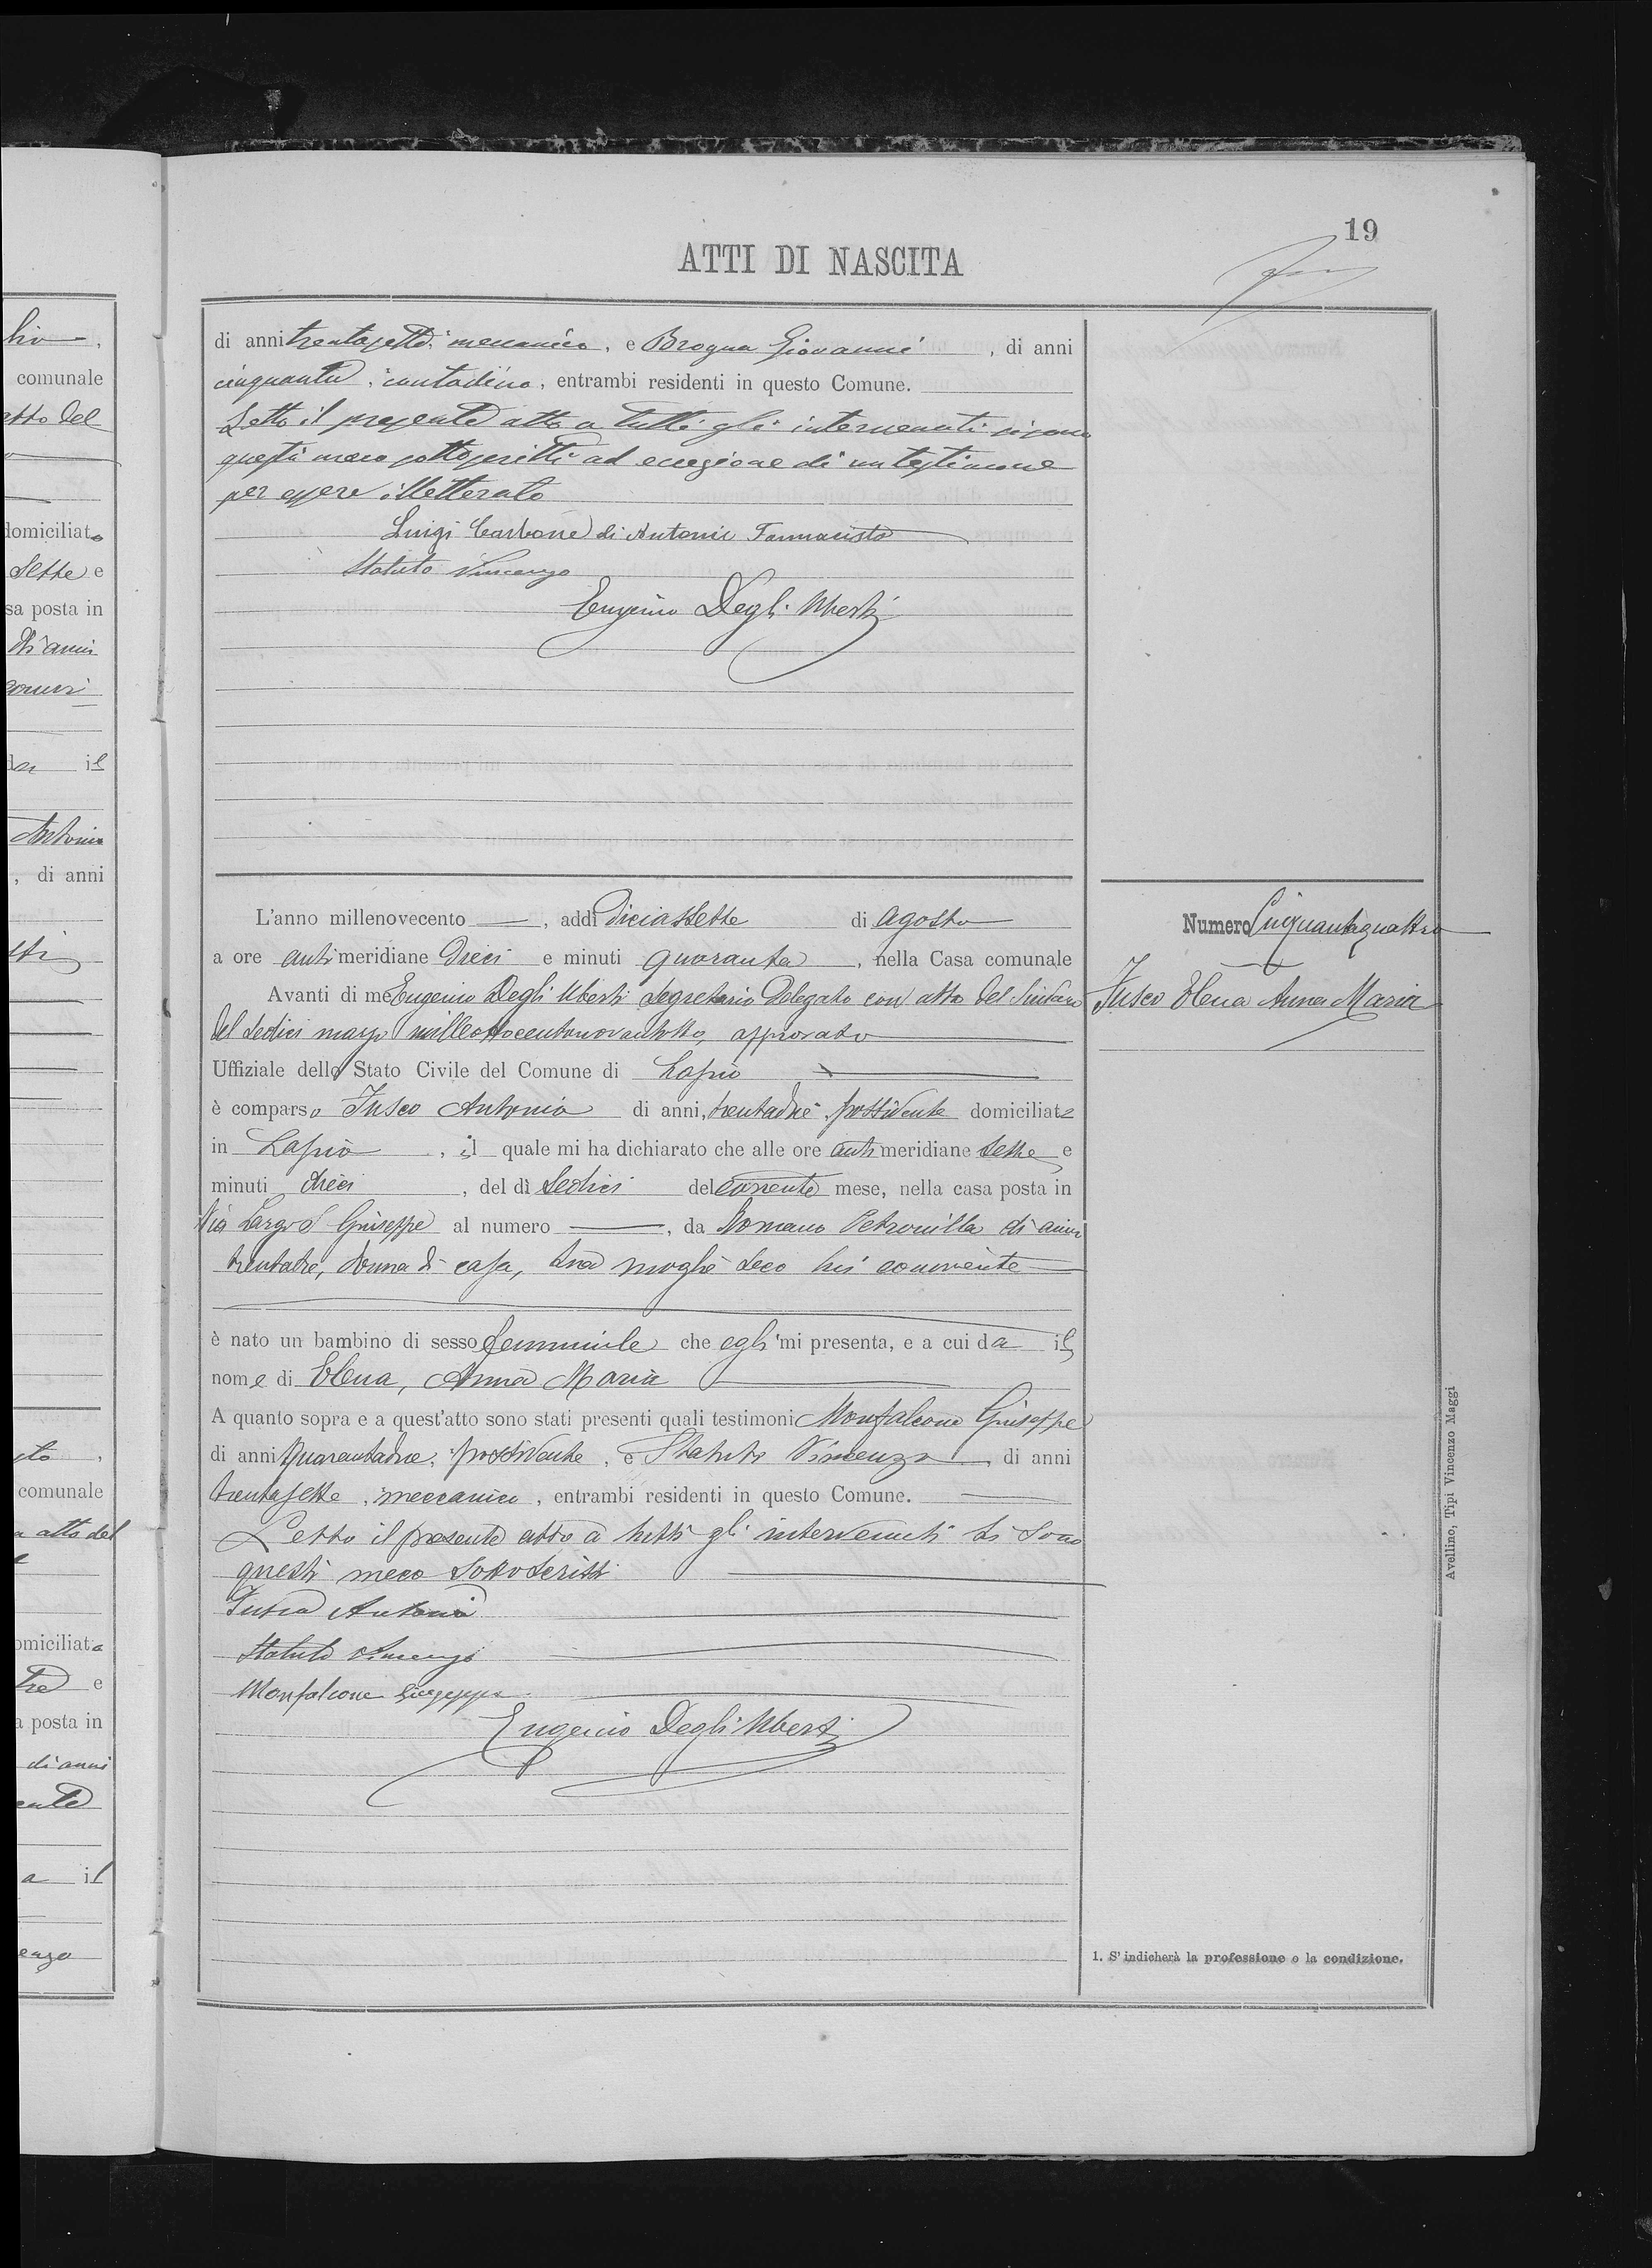 19
ATTI DI NASCITA
hio,
comunale
atto del
domiciliato
Sette e
sa posta in
di anni
da il
Antonio
, di anni
di anni trentasette, meccanico, e Brogna Giovanni, di anni
cinquanta, contadino, entrambi residenti in questo Comune.
Letto il presente atto a tutti gli intervenuti si sono
questi meco sottoscritti ad eccezione di un testimone
per essere illetterato
Luigi Carbone di Antonio Farmacista
Statuto Vincenzo
Eugenio Degli Uberti
L'anno millenovecento, addì diciassette di Agosto
a ore antimeridiane dieci e minuti quaranta, nella Casa comunale
Avanti di me Eugenio Degli Uberti Segretario Delegato con atto del Sindaco
del Sedici marzo milleottocentonovantotto, approvato
Uffiziale dello Stato Civile del Comune di Lapio
è comparso Fusco Antonio di anni, trentadue, possidente domiciliato
in Lapio, il quale mi ha dichiarato che alle ore antimeridiane sette e
minuti dieci, del dì Sedici del corrente mese, nella casa posta in
Via Largo S Giuseppe al numero, da Romano Petronilla di anni
trentatre, donna di casa, sua moglie seco lui convivente
è nato un bambino di sesso femminile che egli mi presenta, e a cui da il
nome di Elena, Anna Maria
A quanto sopra e a quest'atto sono stati presenti quali testimoni Monfalcone Giuseppe
di anni quarantadue, possidente, e Statuto Vincenzo, di anni
trentasette, meccanico, entrambi residenti in questo Comune.
Letto il presente atto a tutti gli intervenuti si sono
questi meco sottoscritti
Fusco Antonio
Statuto Vincenzo
Monfalcone Giuseppe
Eugenio Degli Uberti
Numero Cinquantaquattro
Fusco Elena Anna Maria
1. S'indicherà la professione o la condizione.
Avellino, Tipi Vincenzo Maggi
comunale
atto del
domiciliata
tre e
a posta in
di anni
a il